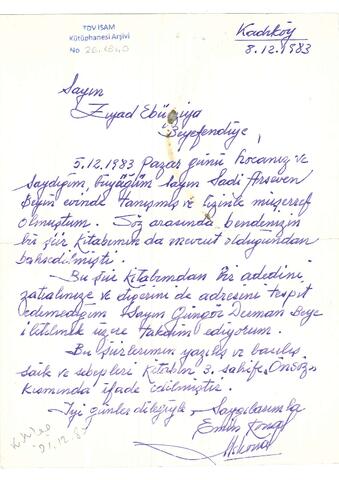 TDV İSAM
Kütüphanesi Arşivi
No 
Kadıköy
8.12.1983
Sayın
Ziyad Ebüzziya
Beyefendiye,
5.12.1983 Pazar günü hocanız ve
Saydığım, büyüğüm Sayın Sadi Arseven
Beyin evinde tanışmış ve sizinle müşerref
olmuştum. Söz arasında bendenizin
bir şiir kitabımın da mevcut olduğundan
bahsedilmişti.
Bu şiir kitabımdan bir adedini
zatıalinize ve diğerini de adresini tespit
edemediğim Sayın Güngör Beye
iletilmek üzere takdim ediyorum.
Bu şiirlerimin yazılış ve basılış
saik ve sebepleri kitabın 3. sahife Önsöz
kısmında ifade edilmiştir.
İyi günler dileğiyle, Saygılarımla
Emin